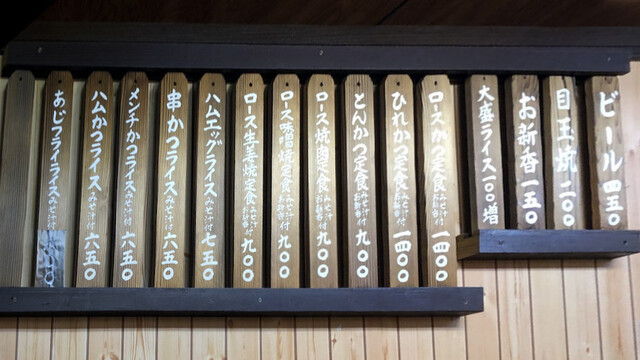 ビール 四五〇
目玉焼 二〇〇
お新香 一五〇
大盛ライス 一〇〇増
ロースかつ定食 みそ汁付 お新香 一四〇〇
ひれかつ定食 みそ汁付 お新香 一四〇〇
とんかつ定食 みそ汁付 お新香 九〇〇
ロース焼肉定食 みそ汁付 お新香 九〇〇
ロース味噌焼定食 みそ汁付 お新香 九〇〇
ロース生姜焼定食 みそ汁付 お新香 九〇〇
ハムエッグライス みそ汁付 七五〇
串かつライス みそ汁付 六五〇
メンチかつライス みそ汁付 六五〇
ハムかつライス みそ汁付 六五〇
あじフライライス みそ汁付